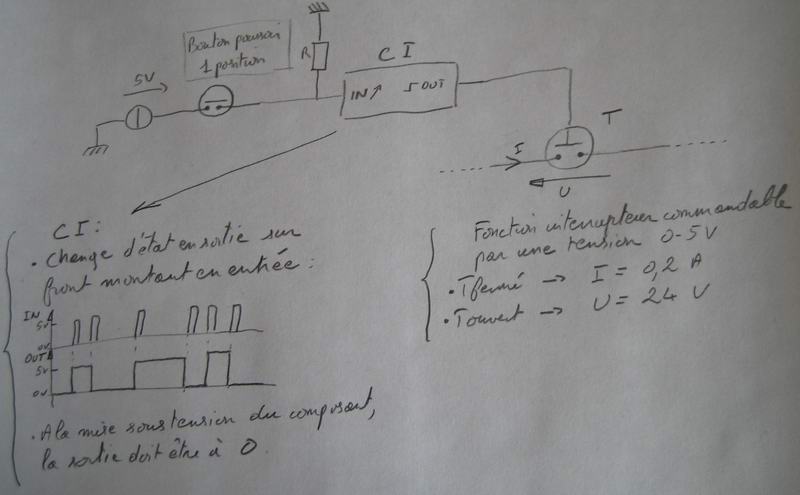 Bouton poussoir
1 position
5V
R
CI
IN ↑
⎍ OUT
T
I
U
CI:
• Change d'état en sortie sur
front montant en entrée :
IN
5V
0V
OUT
5V
0V
• A la mise sous tension du composant,
la sortie doit être à 0.
Fonction interrupteur commandable
par une tension 0-5V
• T fermé → I = 0,2 A
• T ouvert → U = 24 V